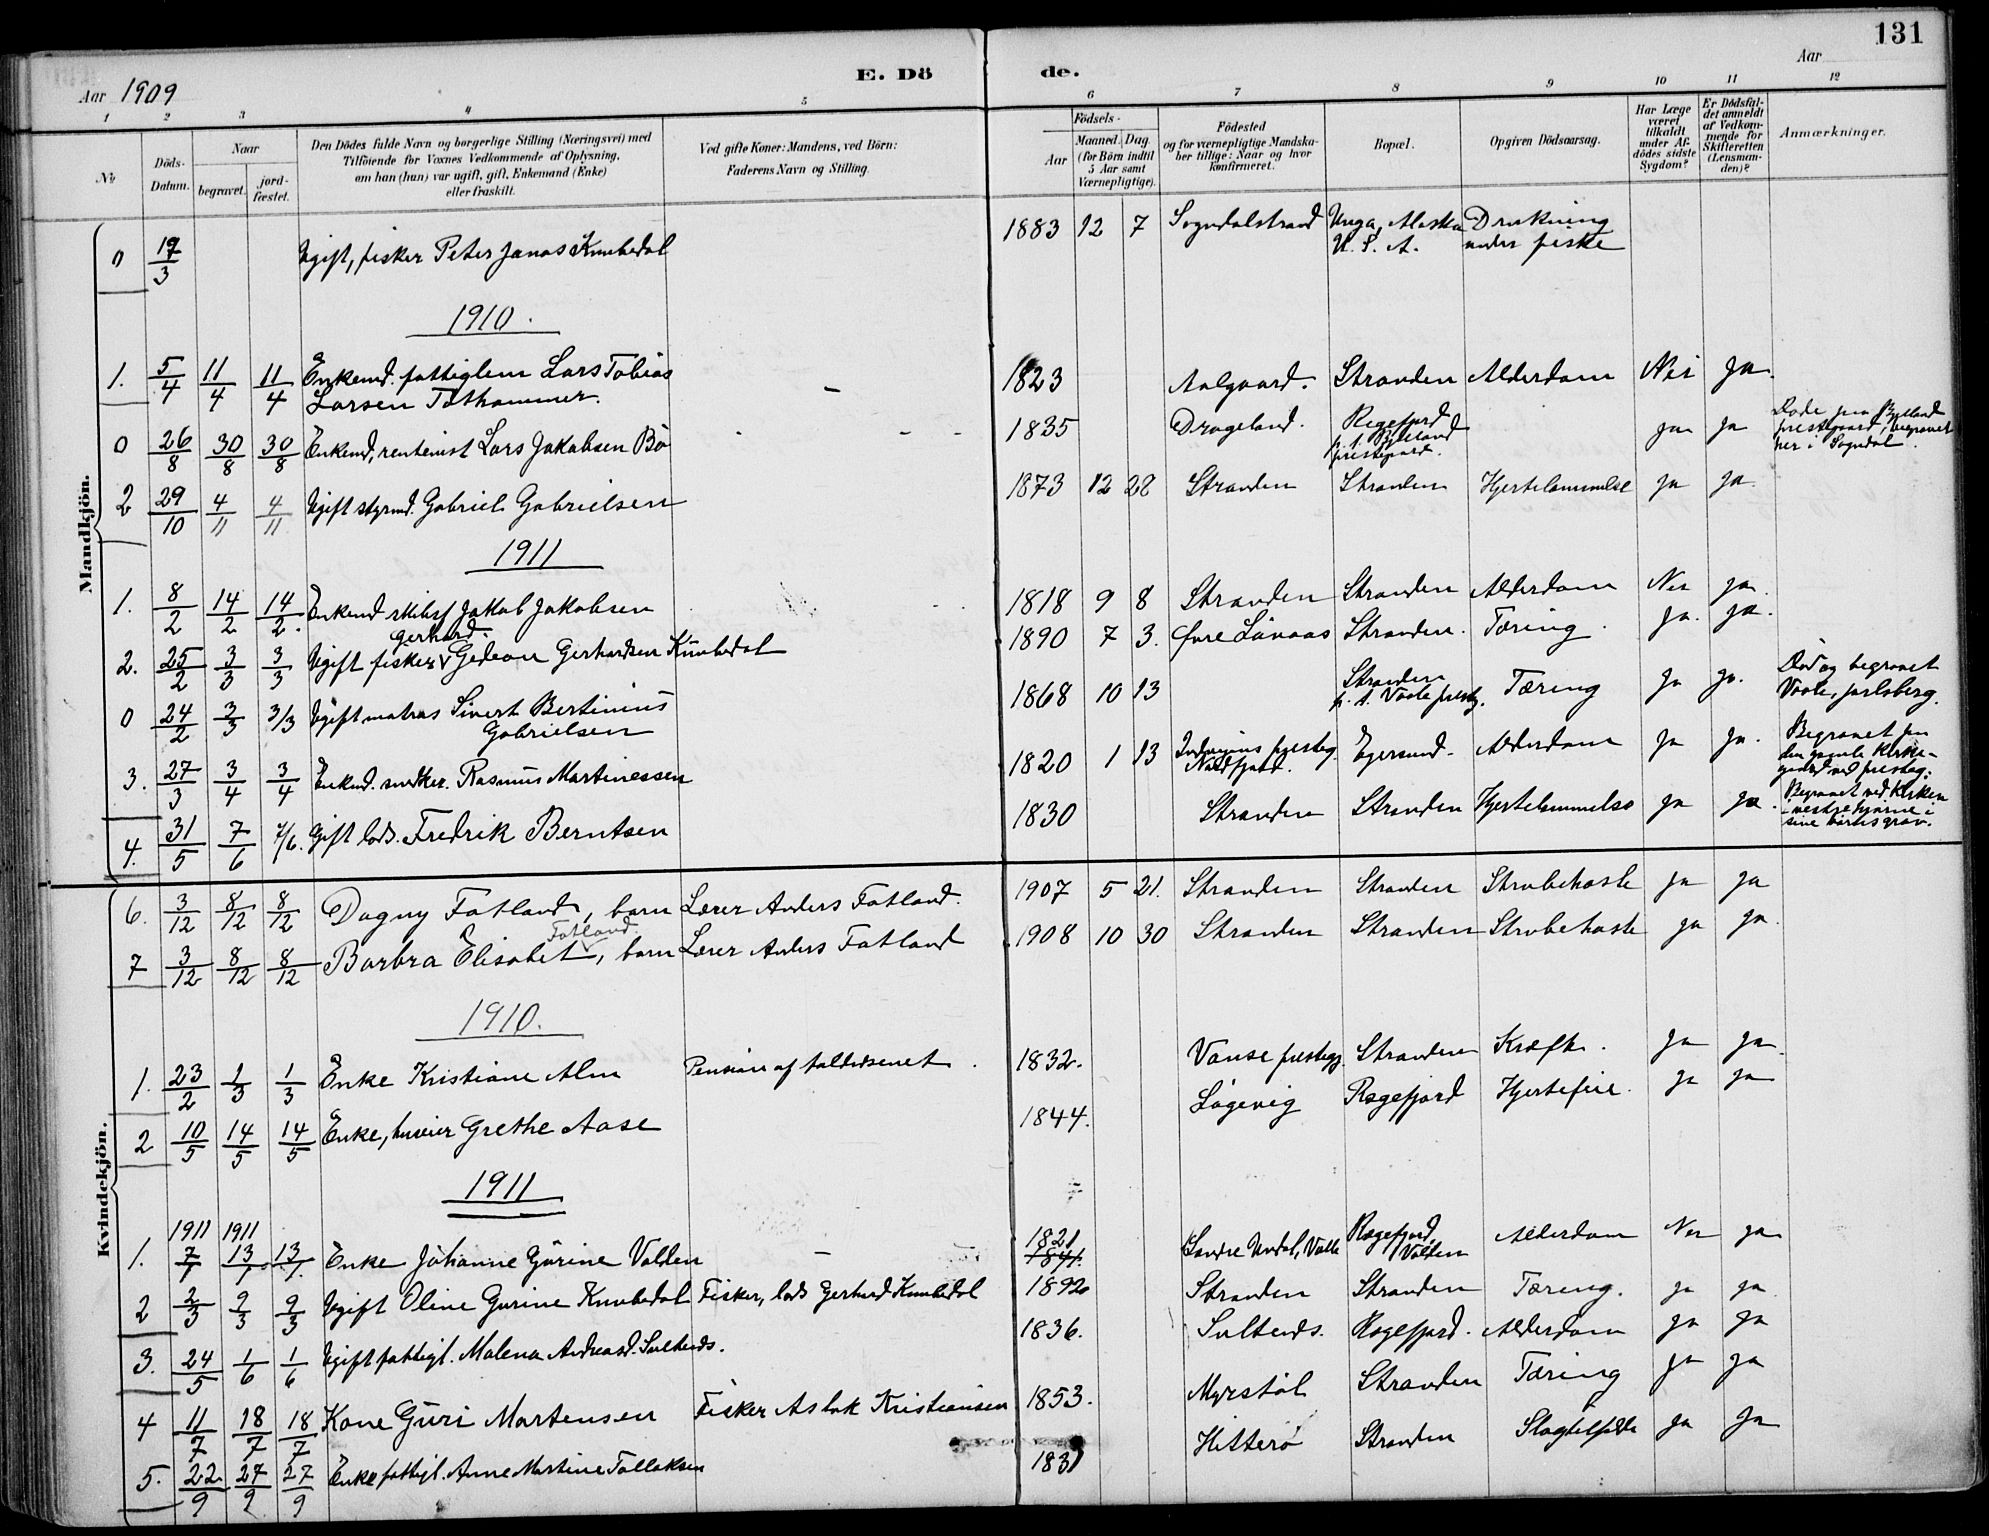 131
E. Dö de.
Aar 1909
Aar
1 2 3 4 5 6 7 8 9 10 11 12
№
Döds-Datum.
Naar
begravet.
jordfæstet.
Den Dödes fulde Navn og borgerlige Stilling (Næringsvei) med
Tilföiende for Voxnes Vedkommende af Oplysning,
om han (hun) var ugift, gift, Enkemand (Enke)
eller fraskilt.
Ved gifte Koner: Mandens, ved Börn:
Faderens Navn og Stilling.
Födsels-
Aar
Maaned. Dag.
(for Börn indtil
5 Aar samt
Værnepligtige).
Födested
og for værnepligtige Mandskaber tillige: Naar og hvor
konfirmeret.
Bopæl.
Opgiven Dödsaarsag.
Har Læge været tilkaldt under Afdödes sidste Sygdom?
Er Dödsfaldet anmeldt af Vedkommende for Skifteretten (Lensmanden)?
Anmærkninger.
Mandkjön.
0 17/3 Ugift, fisker Peter Jonas Knubedal 1883 12 7 Sogndalstrand Unga, Alaska U. S. A. Drukning under fiske
1910.
1. 5/4 11/4 11/4 Enkemd. fattiglem Lars Tobias Larsen Tothammer. – 1823 Aalgaard. Stranden Alderdom Nei ja.
0 26/8 30/8 30/8 Enkemd, rentenist Lars Jakobsen Bö 1835 Drageland. Regefjord p. t. Bjelland prestegaard. ja ja Döde paa Bjelland prestegaard, begravet her i Sogndal.
2 29/10 4/11 4/11 Ugift styrmd. Gabriel Gabrielsen 1873 12 28 Stranden Stranden Hjertelammelse ja ja.
1911
1. 8/2 14/2 14/2. Enkemd skibsf Jakob Jakobsen 1818 9 8 Stranden Stranden Alderdom Nei ja.
2. 25/2 3/3 3/3 Ugift fisker Gerhard Gedeon Gerhardsen Knubedal 1890 7 3. Övre Lövaas Stranden. Tæring. ja. ja.
0 24/2 3/3 3/3 Ugift matros Sivert Bertinius Gabrielsen 1868 10 13 Stranden p. t. Vaale prestg. Tæring ja ja. Död og begravet Vaale, Jarlsberg.
3. 27/3 3/4 3/4 Enkemd. snedker. Rasmus Martinessen 1820 1 13 Indvigens presteg. Nordfjord. Egersund. Alderdom ja ja. Begravet paa den gamle Kirkegaard ved presteg.
4. 31/5 7/6 7/6. Gift lods. Fredrik Berntsen 1830 Stranden Stranden Hjertelammelse ja ja. Begravet ved Kirken i vestre hjörne i sine börns grav.
Kvindekjön.
6. 3/12 8/12 8/12 Dagny Fatland, barn Lærer Anders Fatland. 1907 5 21. Stranden Stranden Strubehoste ja ja
7 3/12 8/12 8/12 Barbra Elisabet Fatland, barn Lærer Anders Fatland 1908 10 30 Stranden Stranden Strubehoste ja ja.
1910.
1. 23/2 1/3 1/3 Enke Kristiane Alm Pension af toldvæsenet. 1832. Vanse prestegj. Stranden Kræft. ja ja.
2 10/5 14/5 14/5 Enke, huseier Grethe Aase 1844. Lögevig Regefjord Hjertefeil. ja ja
1911
1. 1911 7/1 1911 13/1 13/1. Enke Johanne Gurine Valden – 1821 1841. Söndre Undal, Valle Regefjord, Valden Alderdom Nei ja
2 2/3 9/3 9/3 Ugift Oline Gurine Knubedal Fisker, lods Gerhard Knubedal 1892 Stranden Stranden Tæring. ja ja
3. 24/5 1/6 1/6 Ugift fattigl. Malena Andreasd. Svltends. 1836. Svltends. Regefjord. Alderdom ja ja
4 11/7 18/7 18/7 Kone Guri Mortensen Fisker Aslak Kristiansen 1853. Myrstöl Stranden Tæring ja ja
5. 22/9 27/9 27/9 Enke fattigl. Anne Martine Tollaksen 1831 Hitterö Stranden Slagtilfælde ja ja